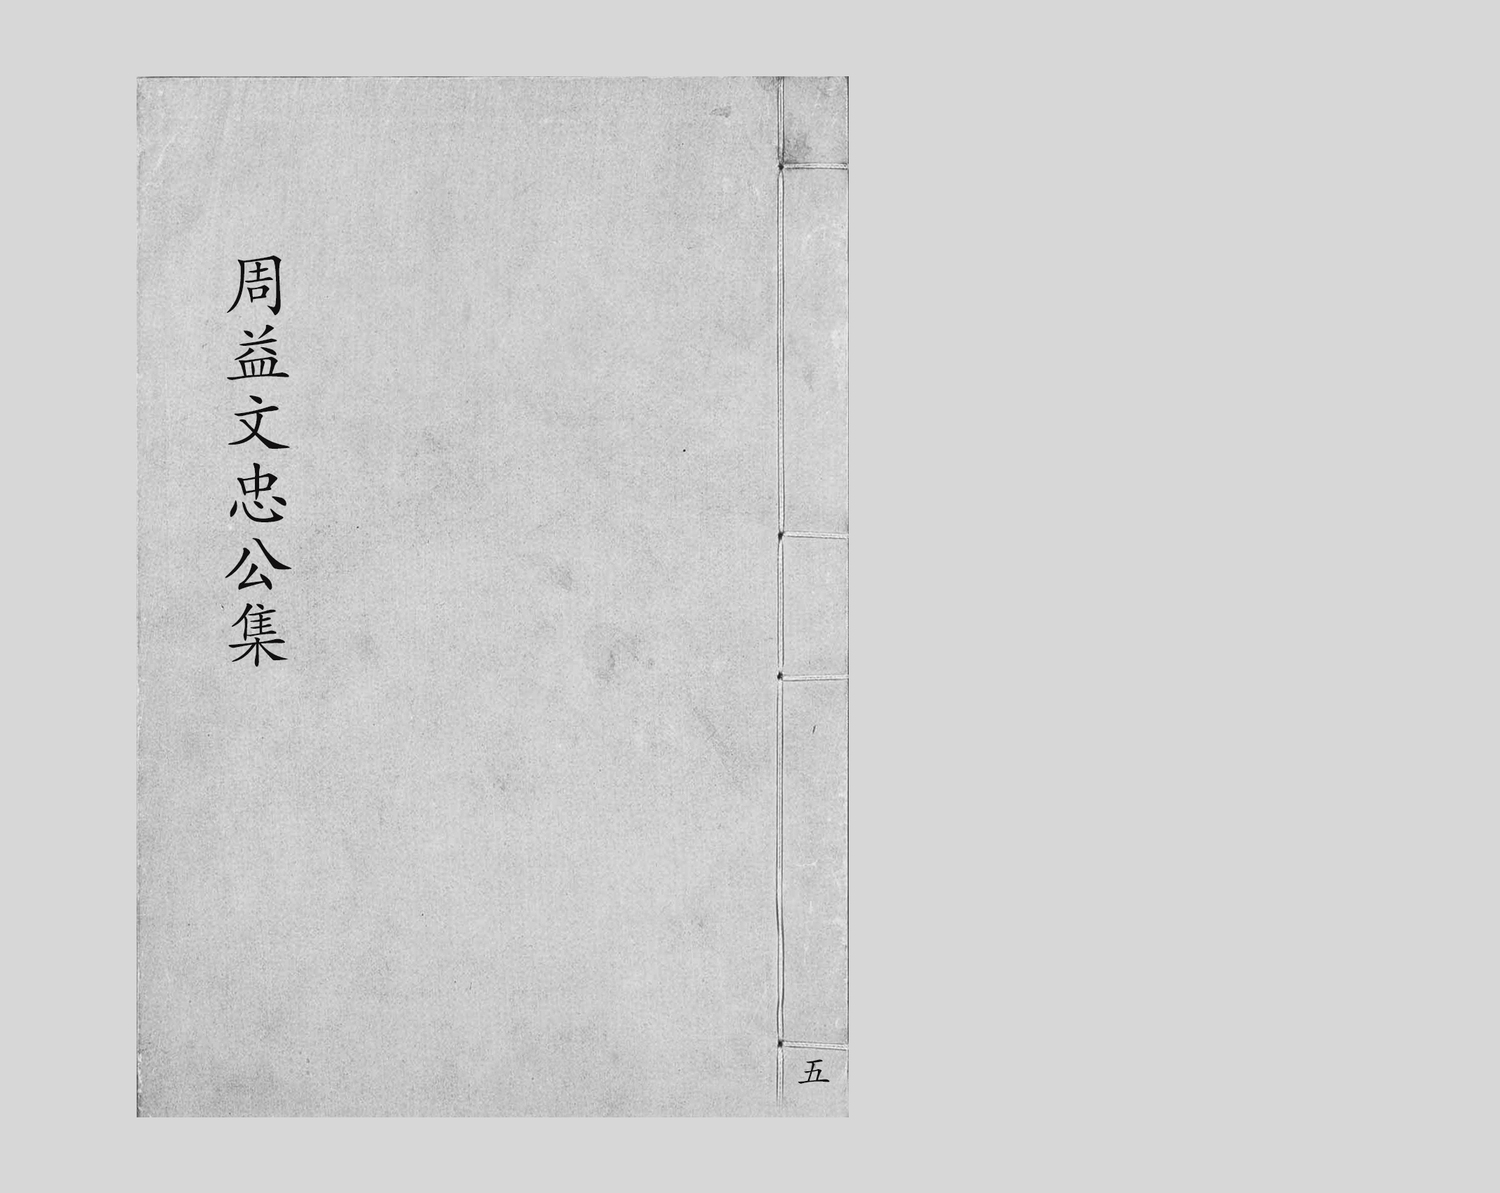 周益文忠公集
五